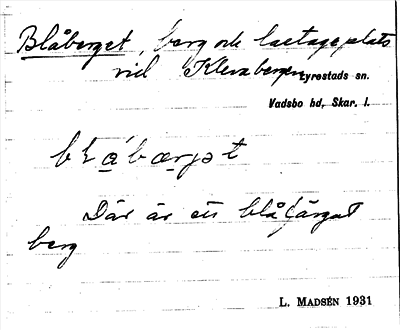 Blåberget, berg och lastageplats
vid Klevabergen
Lyrestads sn.
Vadsbo hd, Skar. l.
bḷɑ̀bærjət
Där är ett blåfärgat
berg
L. MADSÉN 1931